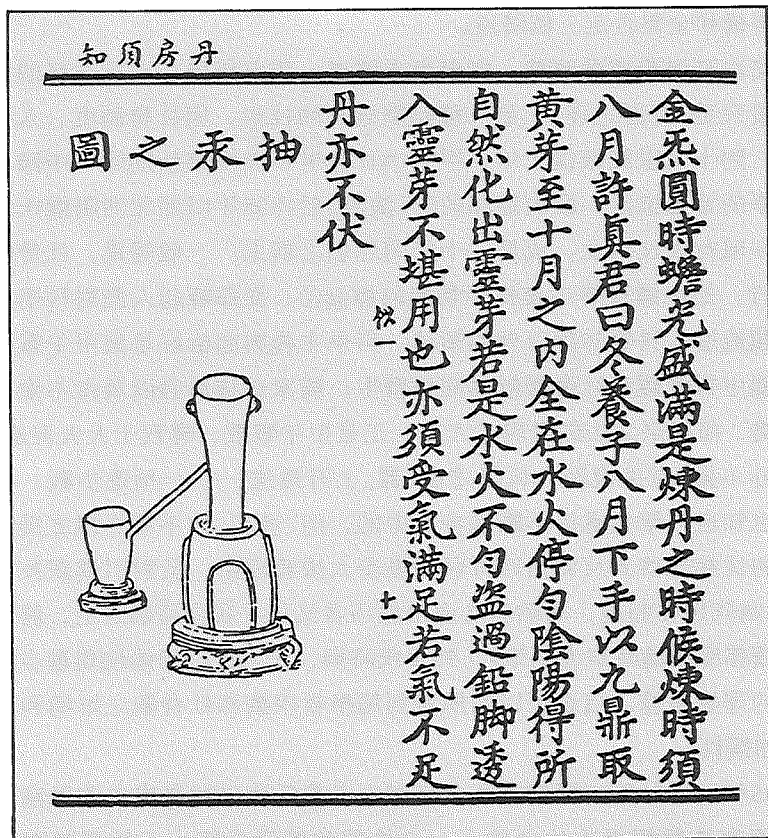 丹房須知
金炁圓時蟾光盛滿是煉丹之時候煉時須
八月許眞君曰冬養子八月下手以九鼎取
黄芽至十月之内全在水火停勻陰陽得所
自然化出靈芽若是水火不勻盜過鉛脚透
入靈芽不堪用也亦須受氣滿足若氣不足
似一
十一
丹亦不伏
抽汞之圖